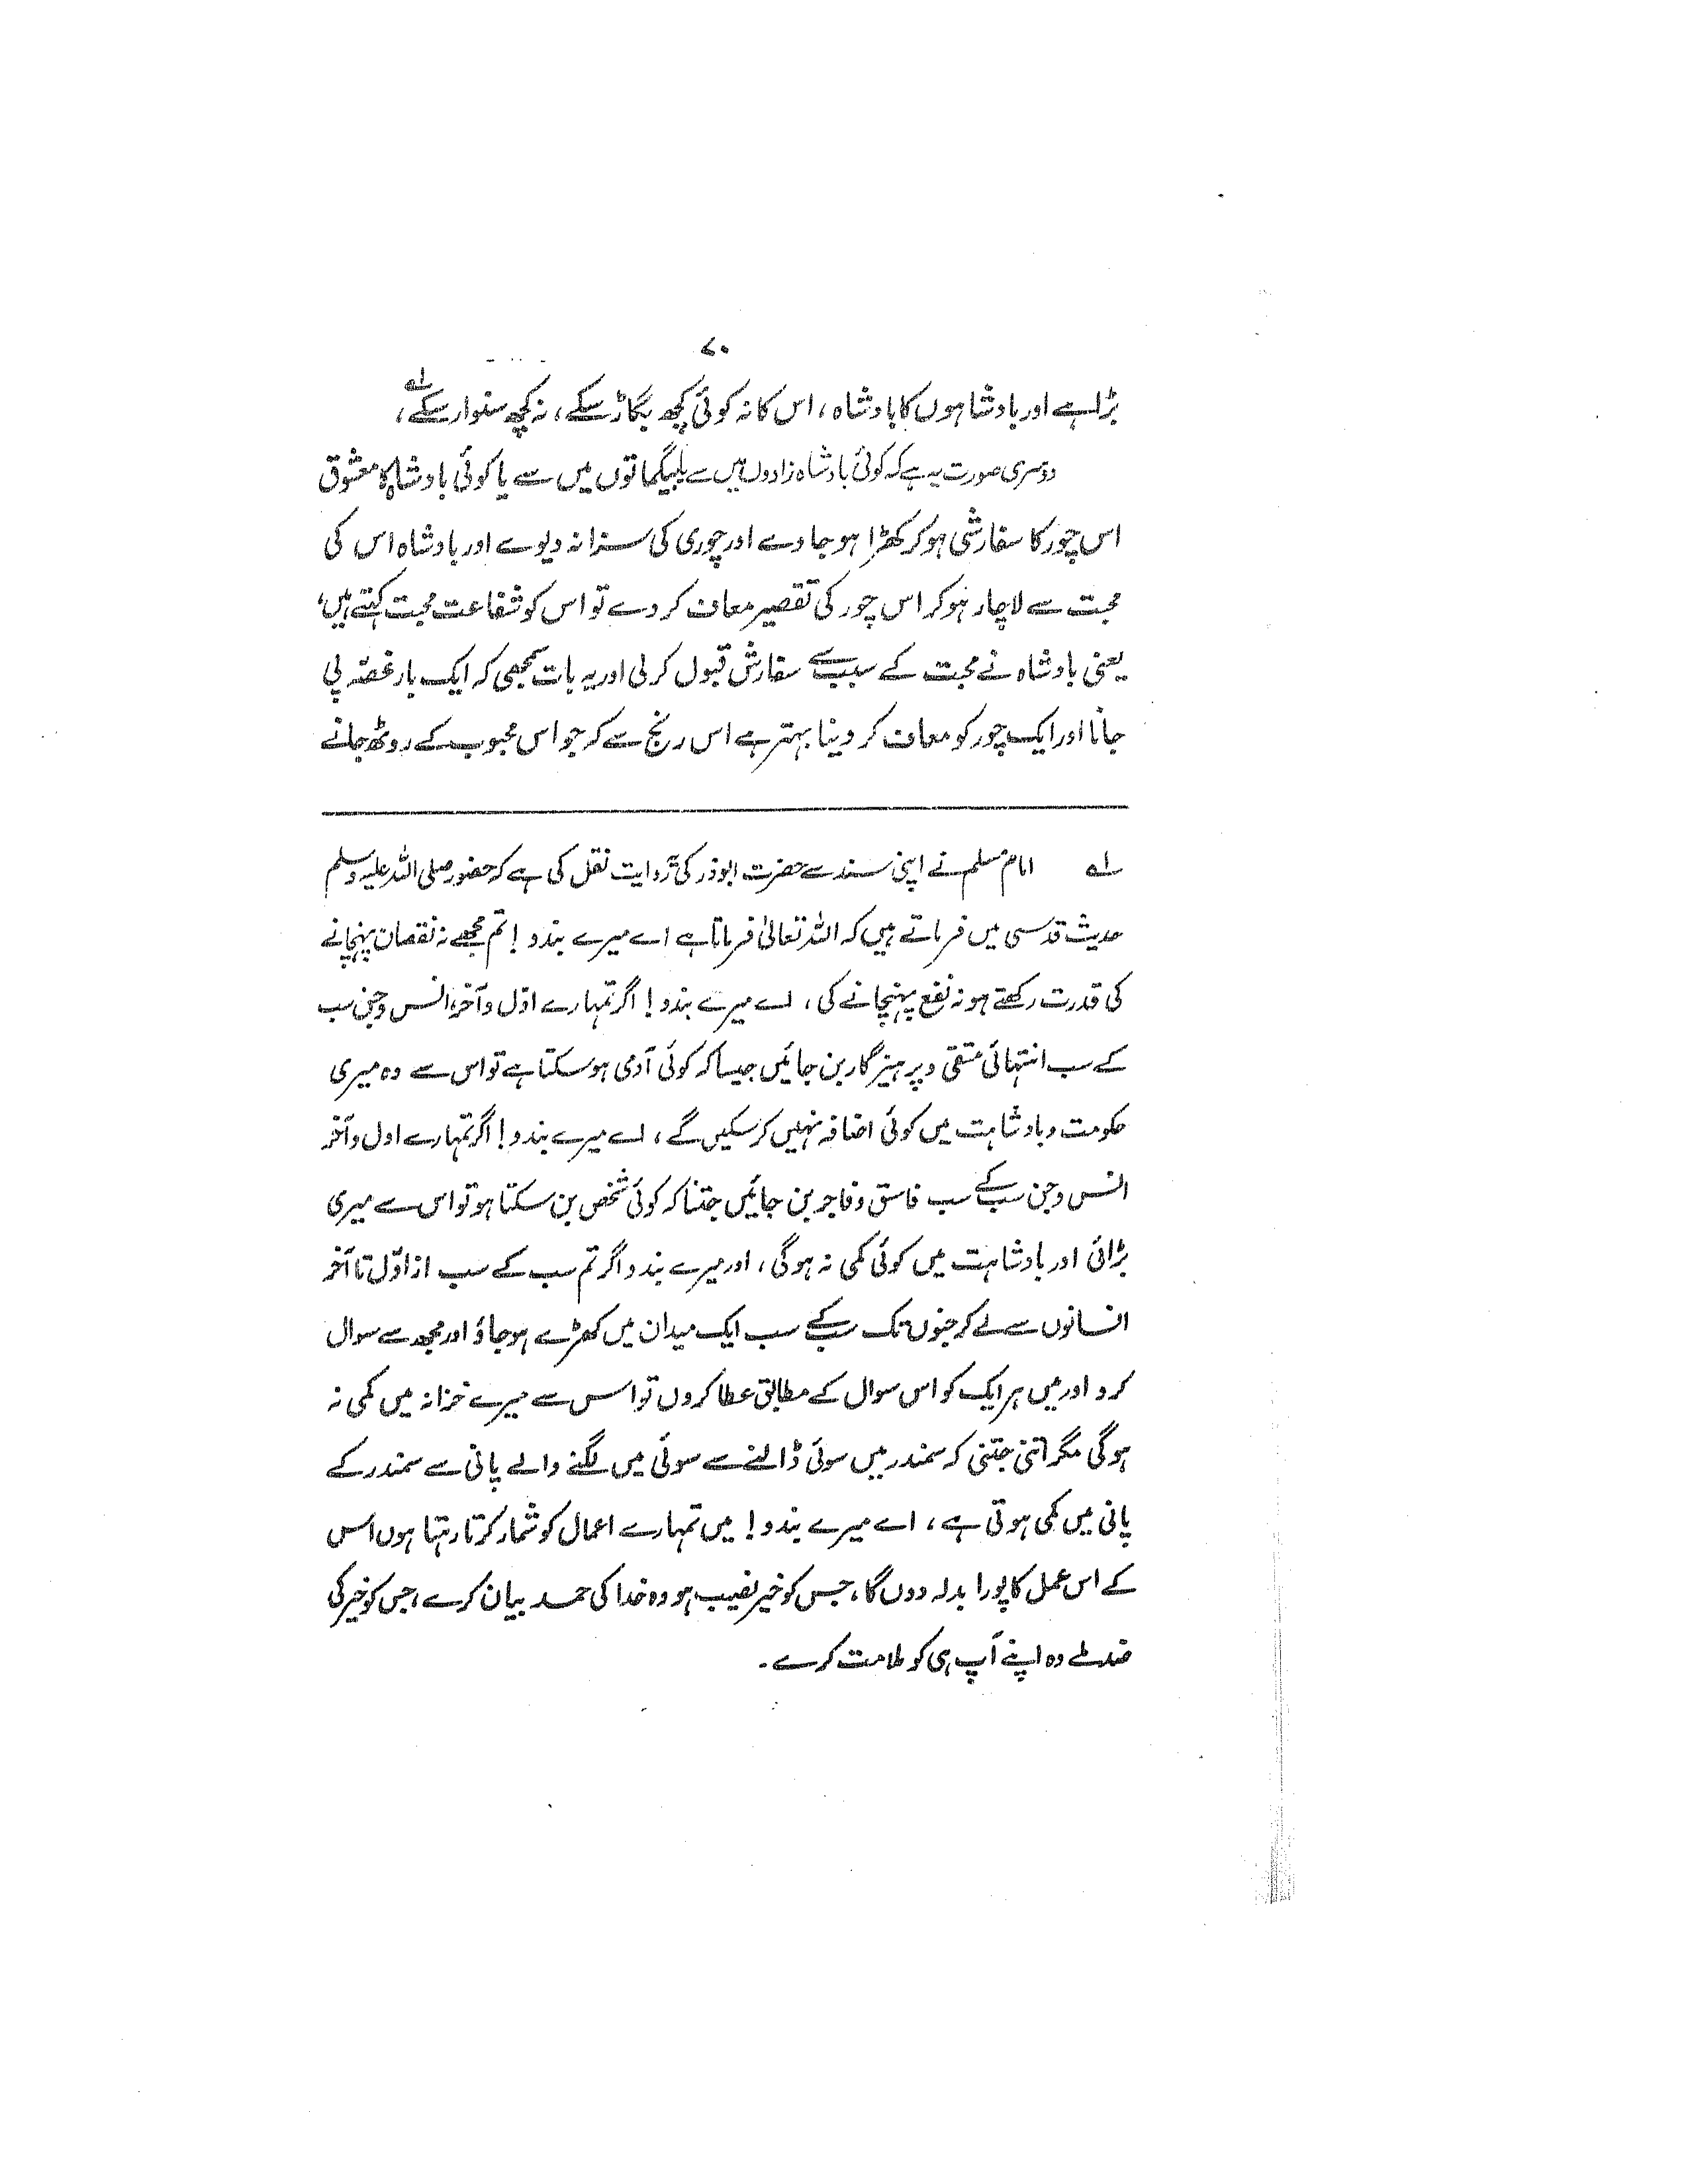 ۷۰
بڑا ہے اور بادشاہوں کا بادشاہ، اس کا نہ کوئی کچھ بگاڑ سکے، نہ کچھ سنوار سکے ؎۱،
دوسری صورت یہ ہے کہ کوئی بادشاہ زادوں میں سے یا بیگماتوں میں سے یا کوئی بادشاہ کا معشوق
اس چور کا سفارشی ہو کر کھڑا ہو جاوے اور چوری کی سزا نہ دیوے اور بادشاہ اس کی
محبت سے لاچار ہو کر اس چور کی تقصیر معاف کر دے تو اس کو شفاعت محبت کہتے ہیں،
یعنی بادشاہ نے محبت کے سبب سے سفارش قبول کر لی اور یہ بات سمجھی کہ ایک بار غصہ پی
جانا اور ایک چور کو معاف کر دینا بہتر ہے اس رنج سے کہ جو اس محبوب کے روٹھ جانے
؎۱ امام مسلم نے اپنی سند سے حضرت ابوذر کی روایت نقل کی ہے کہ حضور صلی اللہ علیہ وسلم
حدیث قدسی میں فرماتے ہیں کہ اللہ تعالیٰ فرماتا ہے اے میرے بندو! تم مجھے نہ نقصان پہنچانے
کی قدرت رکھتے ہو نہ نفع پہنچانے کی، اے میرے بندو! اگر تمہارے اوّل و آخر، انس و جن سب
کے سب انتہائی متقی و پرہیزگار بن جائیں جیسا کہ کوئی آدمی ہو سکتا ہے تو اس سے وہ میری
حکومت و بادشاہت میں کوئی اضافہ نہیں کر سکیں گے، اے میرے بندو! اگر تمہارے اول و آخر
انس و جن سب کے سب فاسق و فاجر بن جائیں جتنا کہ کوئی شخص بن سکتا ہو تو اس سے میری
بڑائی اور بادشاہت میں کوئی کمی نہ ہوگی، اور میرے بندو اگر تم سب کے سب از اوّل تا آخر
انسانوں سے لے کر جنوں تک سب کے سب ایک میدان میں کھڑے ہو جاؤ اور مجھ سے سوال
کرو اور میں ہر ایک کو اس سوال کے مطابق عطا کروں تو اس سے میرے خزانہ میں کمی نہ
ہوگی مگر اتنی جتنی کہ سمندر میں سوئی ڈالنے سے سوئی میں لگنے والے پانی سے سمندر کے
پانی میں کمی ہوتی ہے، اے میرے بندو! میں تمہارے اعمال کو شمار کرتا رہتا ہوں اس
کے اس عمل کا پورا بدلہ دوں گا، جس کو خیر نصیب ہو وہ خدا کی حمد بیان کرے، جس کو خیر کی
ضد ملے وہ اپنے آپ ہی کو ملامت کرے۔